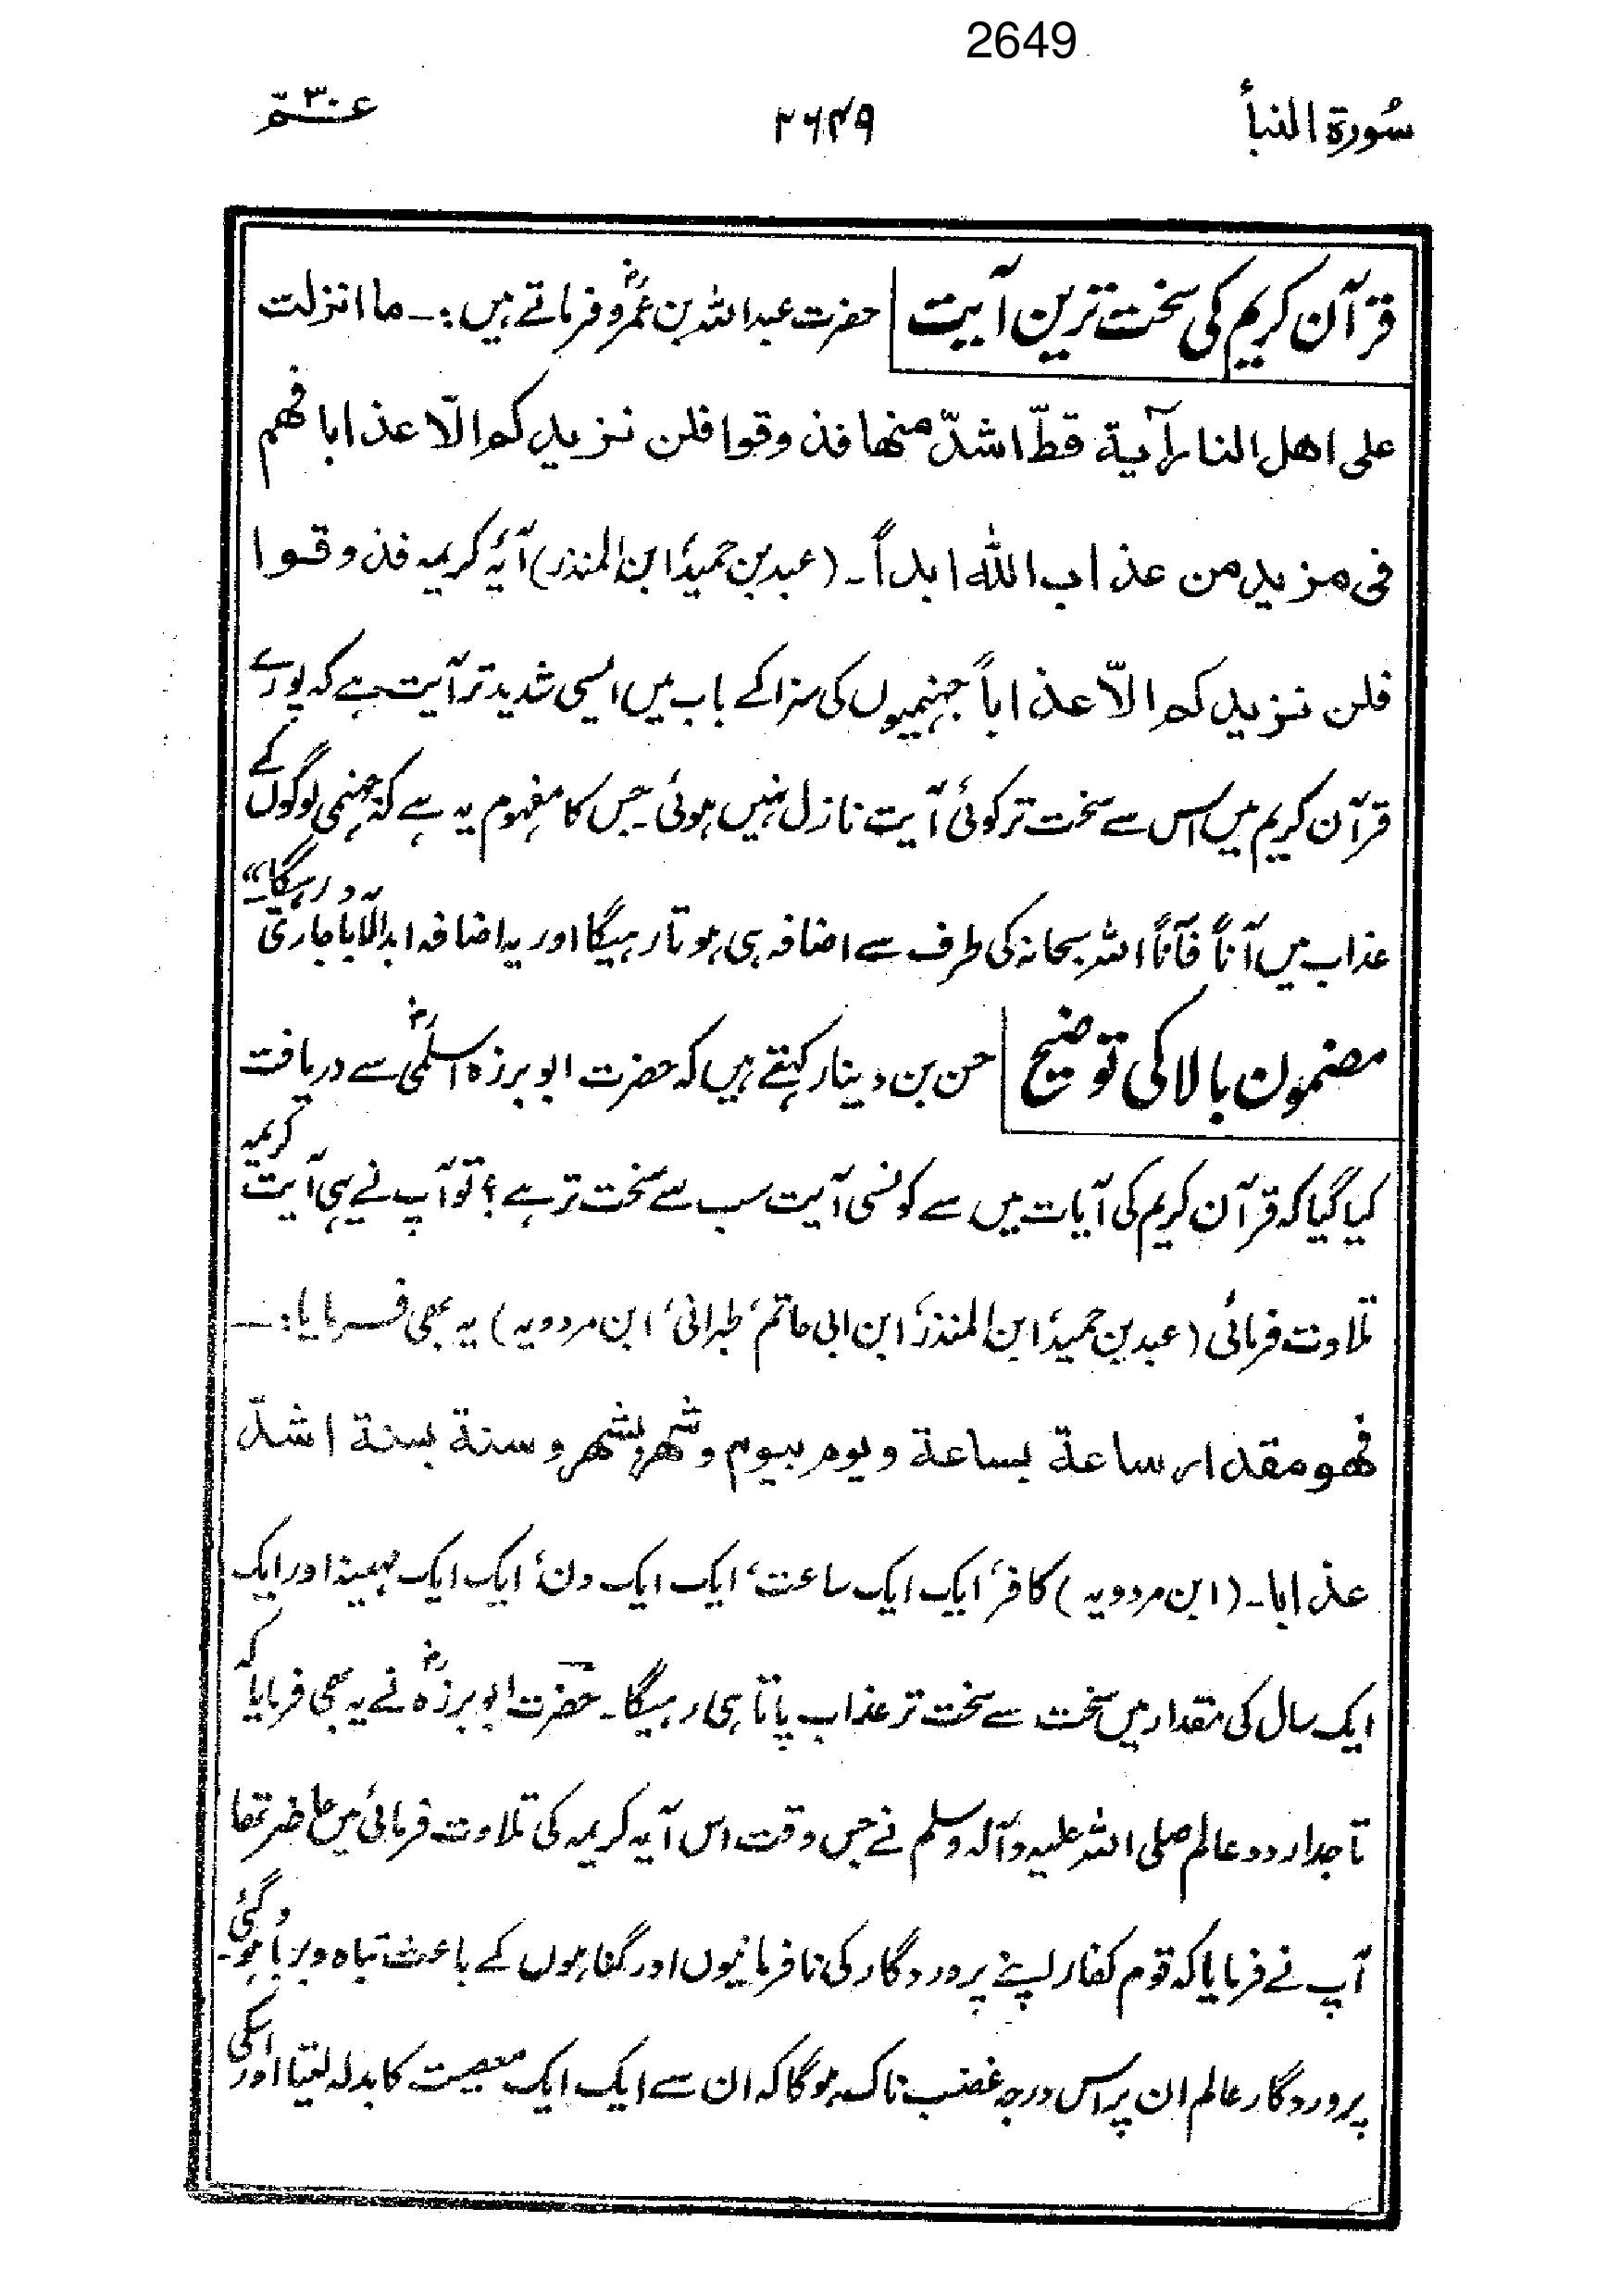 2649
سُورۃ النبأ ۲۶۴۹ عمّ ۳۰
قرآن کریم کی سخت ترین آیت حضرت عبداللہ بن عمرؓو فرماتے ہیں:۔ ما انزلت
علی اھل النار آیة قطّ اشدّ منھا فذوقوا فلن نزیدکم الّا عذابا فھم
فی مزید من عذاب اللّٰہ ابداً۔ (عبد بن حمید، ابن المنذر) آیۂ کریمہ فذوقوا
فلن نزیدکم الّا عذاباً جہنمیوں کی سزا کے باب میں ایسی شدید تر آیت ہے کہ پورے
قرآن کریم میں اس سے سخت تر کوئی آیت نازل نہیں ہوئی۔ جس کا مفہوم یہ ہے کہ جہنمی لوگوں کے
عذاب میں آناً فآناً اللہ سبحانہ کی طرف سے اضافہ ہی ہوتا رہیگا اور یہ اضافہ ابدالآباد جاری رہیگا۔"
مضمون بالا کی توضیح حسن بن دینار کہتے ہیں کہ حضرت ابوبرزہ اسلمیؓ سے دریافت
کیا گیا کہ قرآن کریم کی آیات میں سے کونسی آیت سب سے سخت تر ہے؟ تو آپ نے یہی آیت کریمہ
تلاوت فرمائی (عبد بن حمید، ابن المنذر، ابن ابی حاتم، طبرانی، ابن مردویہ) یہ بھی فرمایا:۔
فھو مقدار ساعة بساعة ویوم بیوم وشھر بشھر وسنة بسنة اشدّ
عذابا۔ (ابن مردویہ) کافر، ایک ایک ساعت، ایک ایک دن، ایک ایک مہینہ اور ایک
ایک سال کی مقدار میں سخت سے سخت تر عذاب پاتا ہی رہیگا۔ حضرت ابوبرزہؓ نے یہ بھی فرمایا کہ
تاجدار دو عالم صلی اللہ علیہ وآلہ وسلم نے جس وقت اس آیہ کریمہ کی تلاوت فرمائی، میں حاضر تھا
آپ نے فرمایا کہ قوم کفار اپنے پروردگار کی نافرمانیوں اور گناہوں کے باعث تباہ و برباد ہوگئی۔
پروردگار عالم ان پر اس درجہ غضب ناک ہوگا کہ ان سے ایک ایک معصیت کا بدلہ لیتا اور اسکی